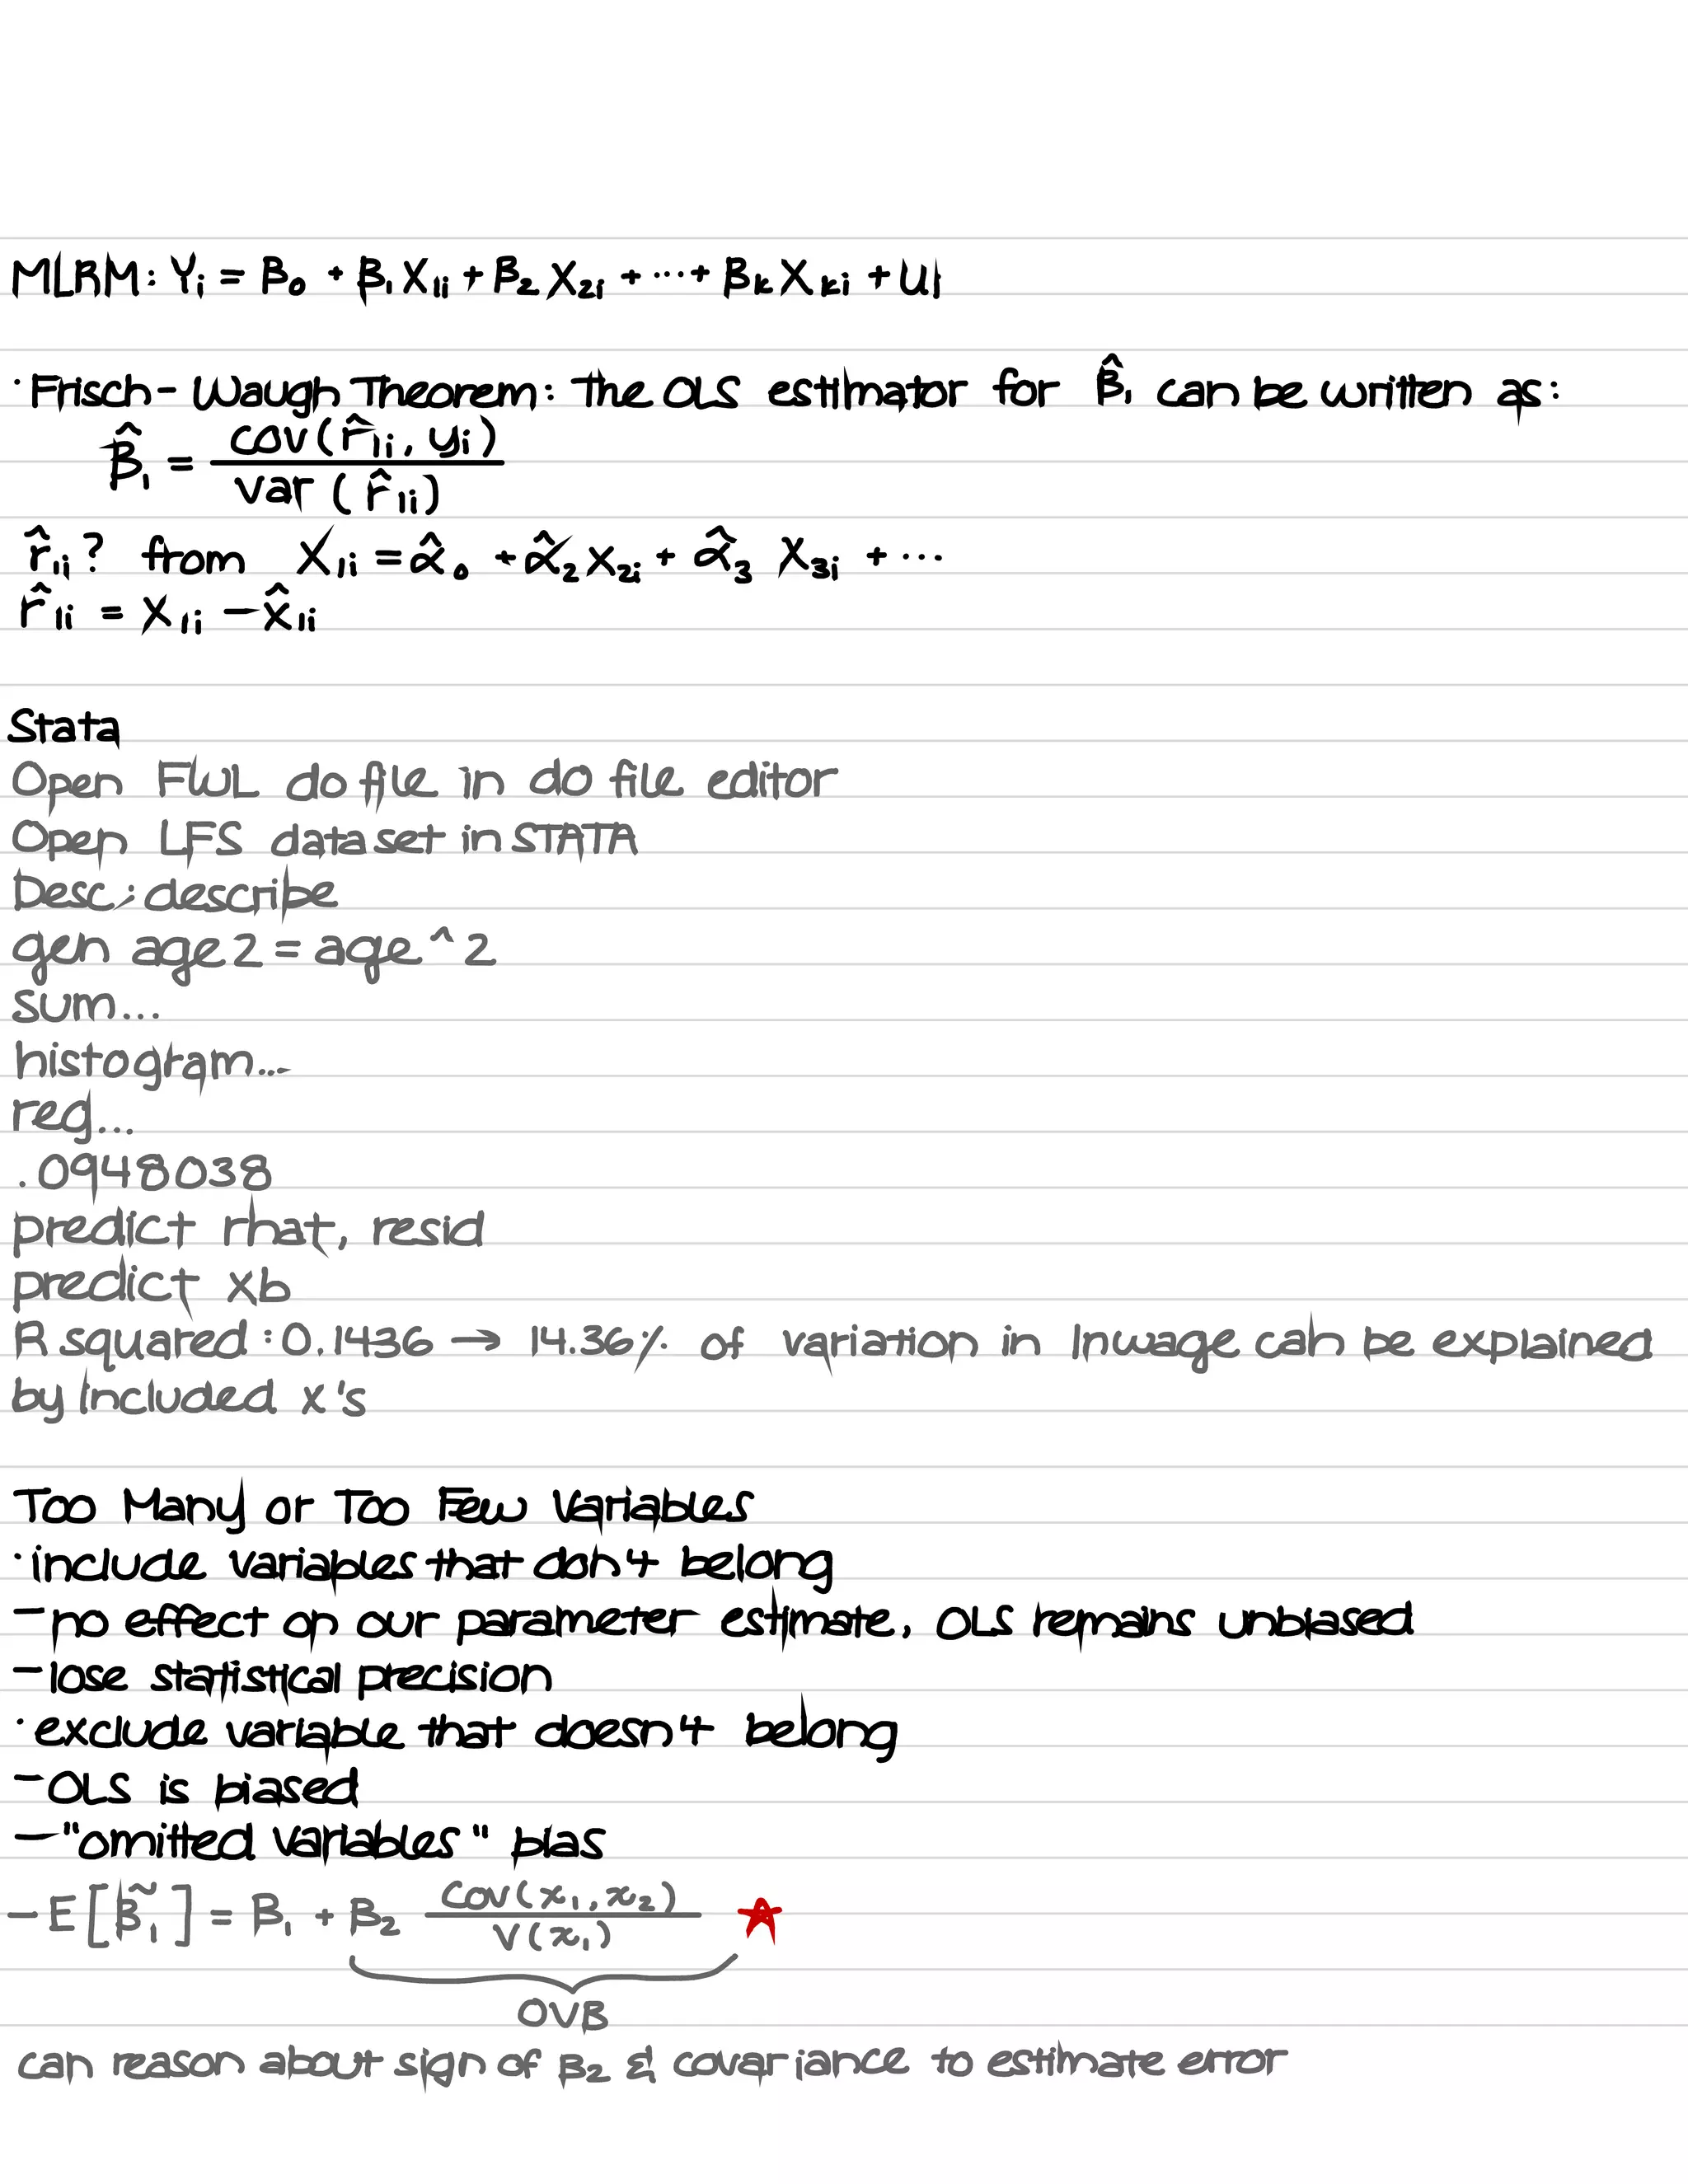 MLRM: Yᵢ = B₀ + B₁X₁ᵢ + B₂X₂ᵢ + ··· + BₖXₖᵢ + Uᵢ
· Frisch-Waugh Theorem: The OLS estimator for B̂₁ can be written as:
B̂₁ = cov(r̂₁ᵢ, yᵢ) / var(r̂₁ᵢ)
r̂₁ᵢ? from X₁ᵢ = α̂₀ + α̂₂X₂ᵢ + α̂₃ X₃ᵢ + ···
r̂₁ᵢ = X₁ᵢ - x̂₁ᵢ
Stata
Open FWL do file in do file editor
Open LFS dataset in STATA
Desc; describe
gen age2 = age^2
sum...
histogram...
reg...
.0948038
predict rhat, resid
predict xb
R squared: 0.1436 → 14.36% of variation in lnwage can be explained
by included x's
Too Many or Too Few Variables
· include variables that don't belong
- no effect on our parameter estimate, OLS remains unbiased
- lose statistical precision
· exclude variable that doesn't belong
- OLS is biased
- "omitted variables" bias
- E[B̃₁] = B₁ + B₂ cov(x₁, x₂) / V(x₁) ☆
OVB
can reason about sign of B₂ & covariance to estimate error